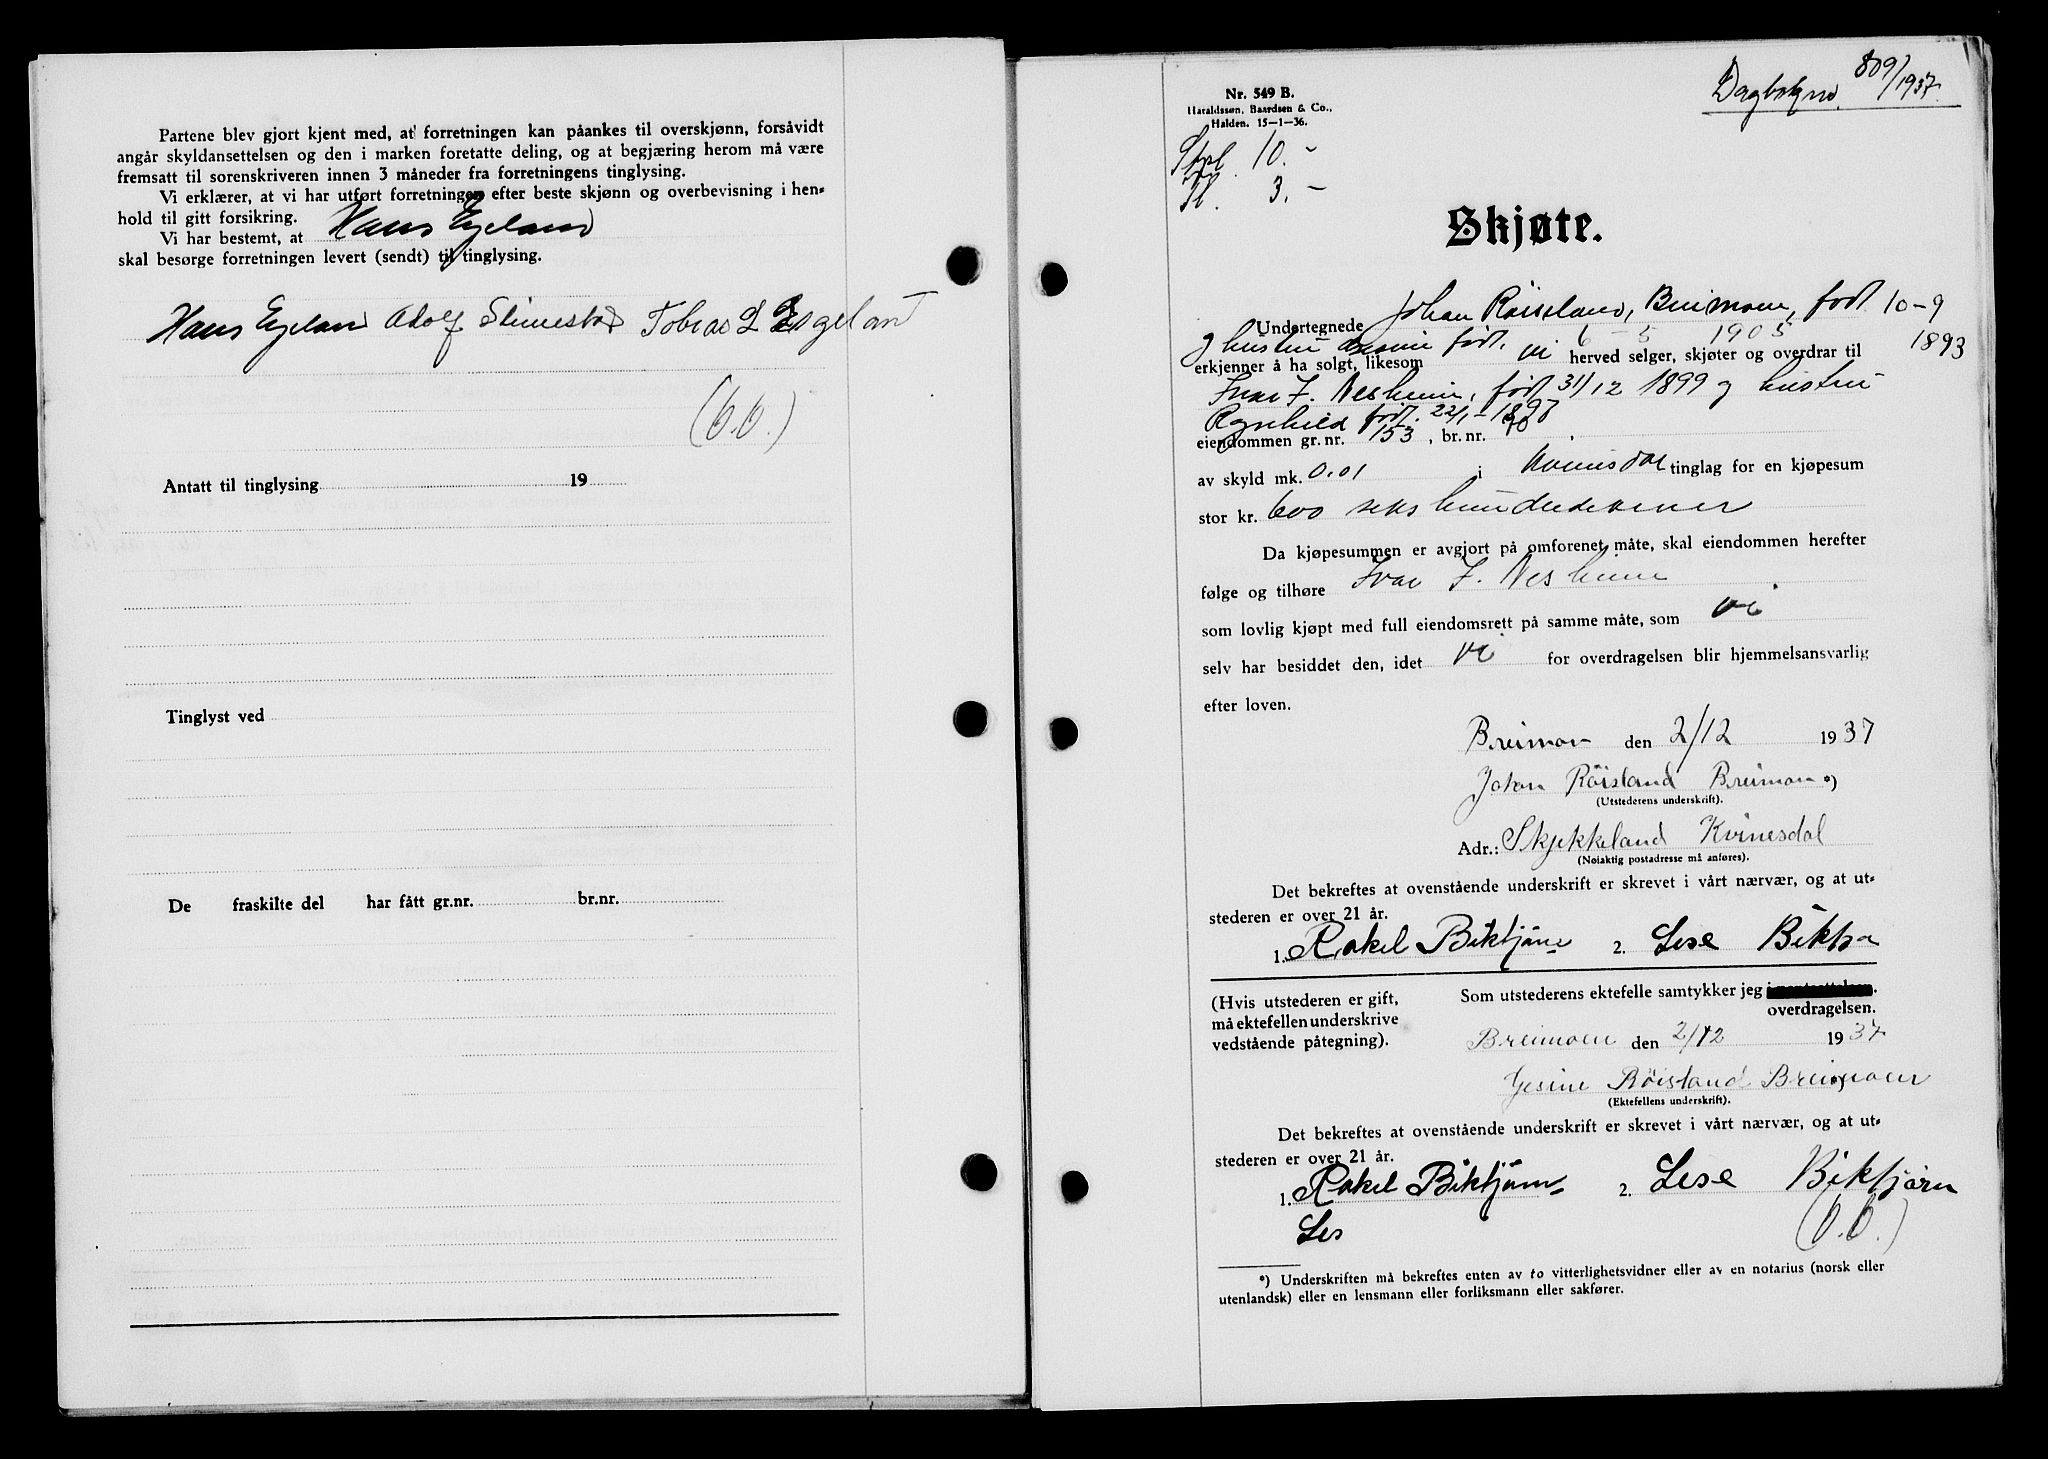 Partene blev gjort kjent med, at forretningen kan påankes til overskjønn, forsåvidt
angår skyldansettelsen og den i marken foretatte deling, og at begjæring herom må være
fremsatt til sorenskriveren innen 3 måneder fra forretningens tinglysing.
Vi erklærer, at vi har utført forretningen efter beste skjønn og overbevisning i hen-
hold til gitt forsikring.
Vi har bestemt, at Hans Egeland
skal besørge forretningen levert (sendt) til tinglysing.
Hans Egeland Adolf Slimestad Tobias L Esgeland
Antatt til tinglysing 19
Tinglyst ved
De fraskilte del har fått gr.nr. br.nr.
Nr. 549 B.
Haraldssøn, Baardsen & Co.,
Halden. 15-1-36.
Dagbokgnr. 809/1937.
Stpl. 10.-
Tl. 3.-
Skjøte.
Undertegnede Johan Röisland, Breimoen, født 10-9
1893
g hustru Gesine født. 6-5 1905
erkjenner å ha solgt, likesom vi herved selger, skjøter og overdrar til
Ivar F. Nesheim, født 31/12 1899 g hustru
Ragnhild født. 22/1-1897
eiendommen gr.nr. 153, br.nr. 70
av skyld mk. 0.01 i Kvinesdal tinglag for en kjøpesum
stor kr. 600 sekshundredekroner
Da kjøpesummen er avgjort på omforenet måte, skal eiendommen herefter
følge og tilhøre Ivar F. Nesheim
som lovlig kjøpt med full eiendomsrett på samme måte, som vi
selv har besiddet den, idet vi for overdragelsen blir hjemmelsansvarlig
efter loven.
Breimon den 2/12 1937
Johan Röisland Breimon *)
(Utstederens underskrift).
Adr.: Skjekkeland Kvinesdal
(Nøiaktig postadresse må anføres).
Det bekreftes at ovenstående underskrift er skrevet i vårt nærvær, og at ut-
stederen er over 21 år.
1. Rakel Biktjørn 2. Lese
(Hvis utstederen er gift,
må ektefellen underskrive
vedstående påtegning).
Som utstederens ektefelle samtykker jeg i
overdragelsen.
Breimoen den 2/12 1937
Gesine Röisland Breimoen
(Ektefellens underskrift).
Det bekreftes at ovenstående underskrift er skrevet i vårt nærvær, og at ut-
stederen er over 21 år.
1. Rakel Biktjørn 2. Lese Biktjørn
Les
*) Underskriften må bekreftes enten av to vitterlighetsvidner eller av en notarius (norsk eller
utenlandsk) eller en lensmann eller forliksmann eller sakfører.